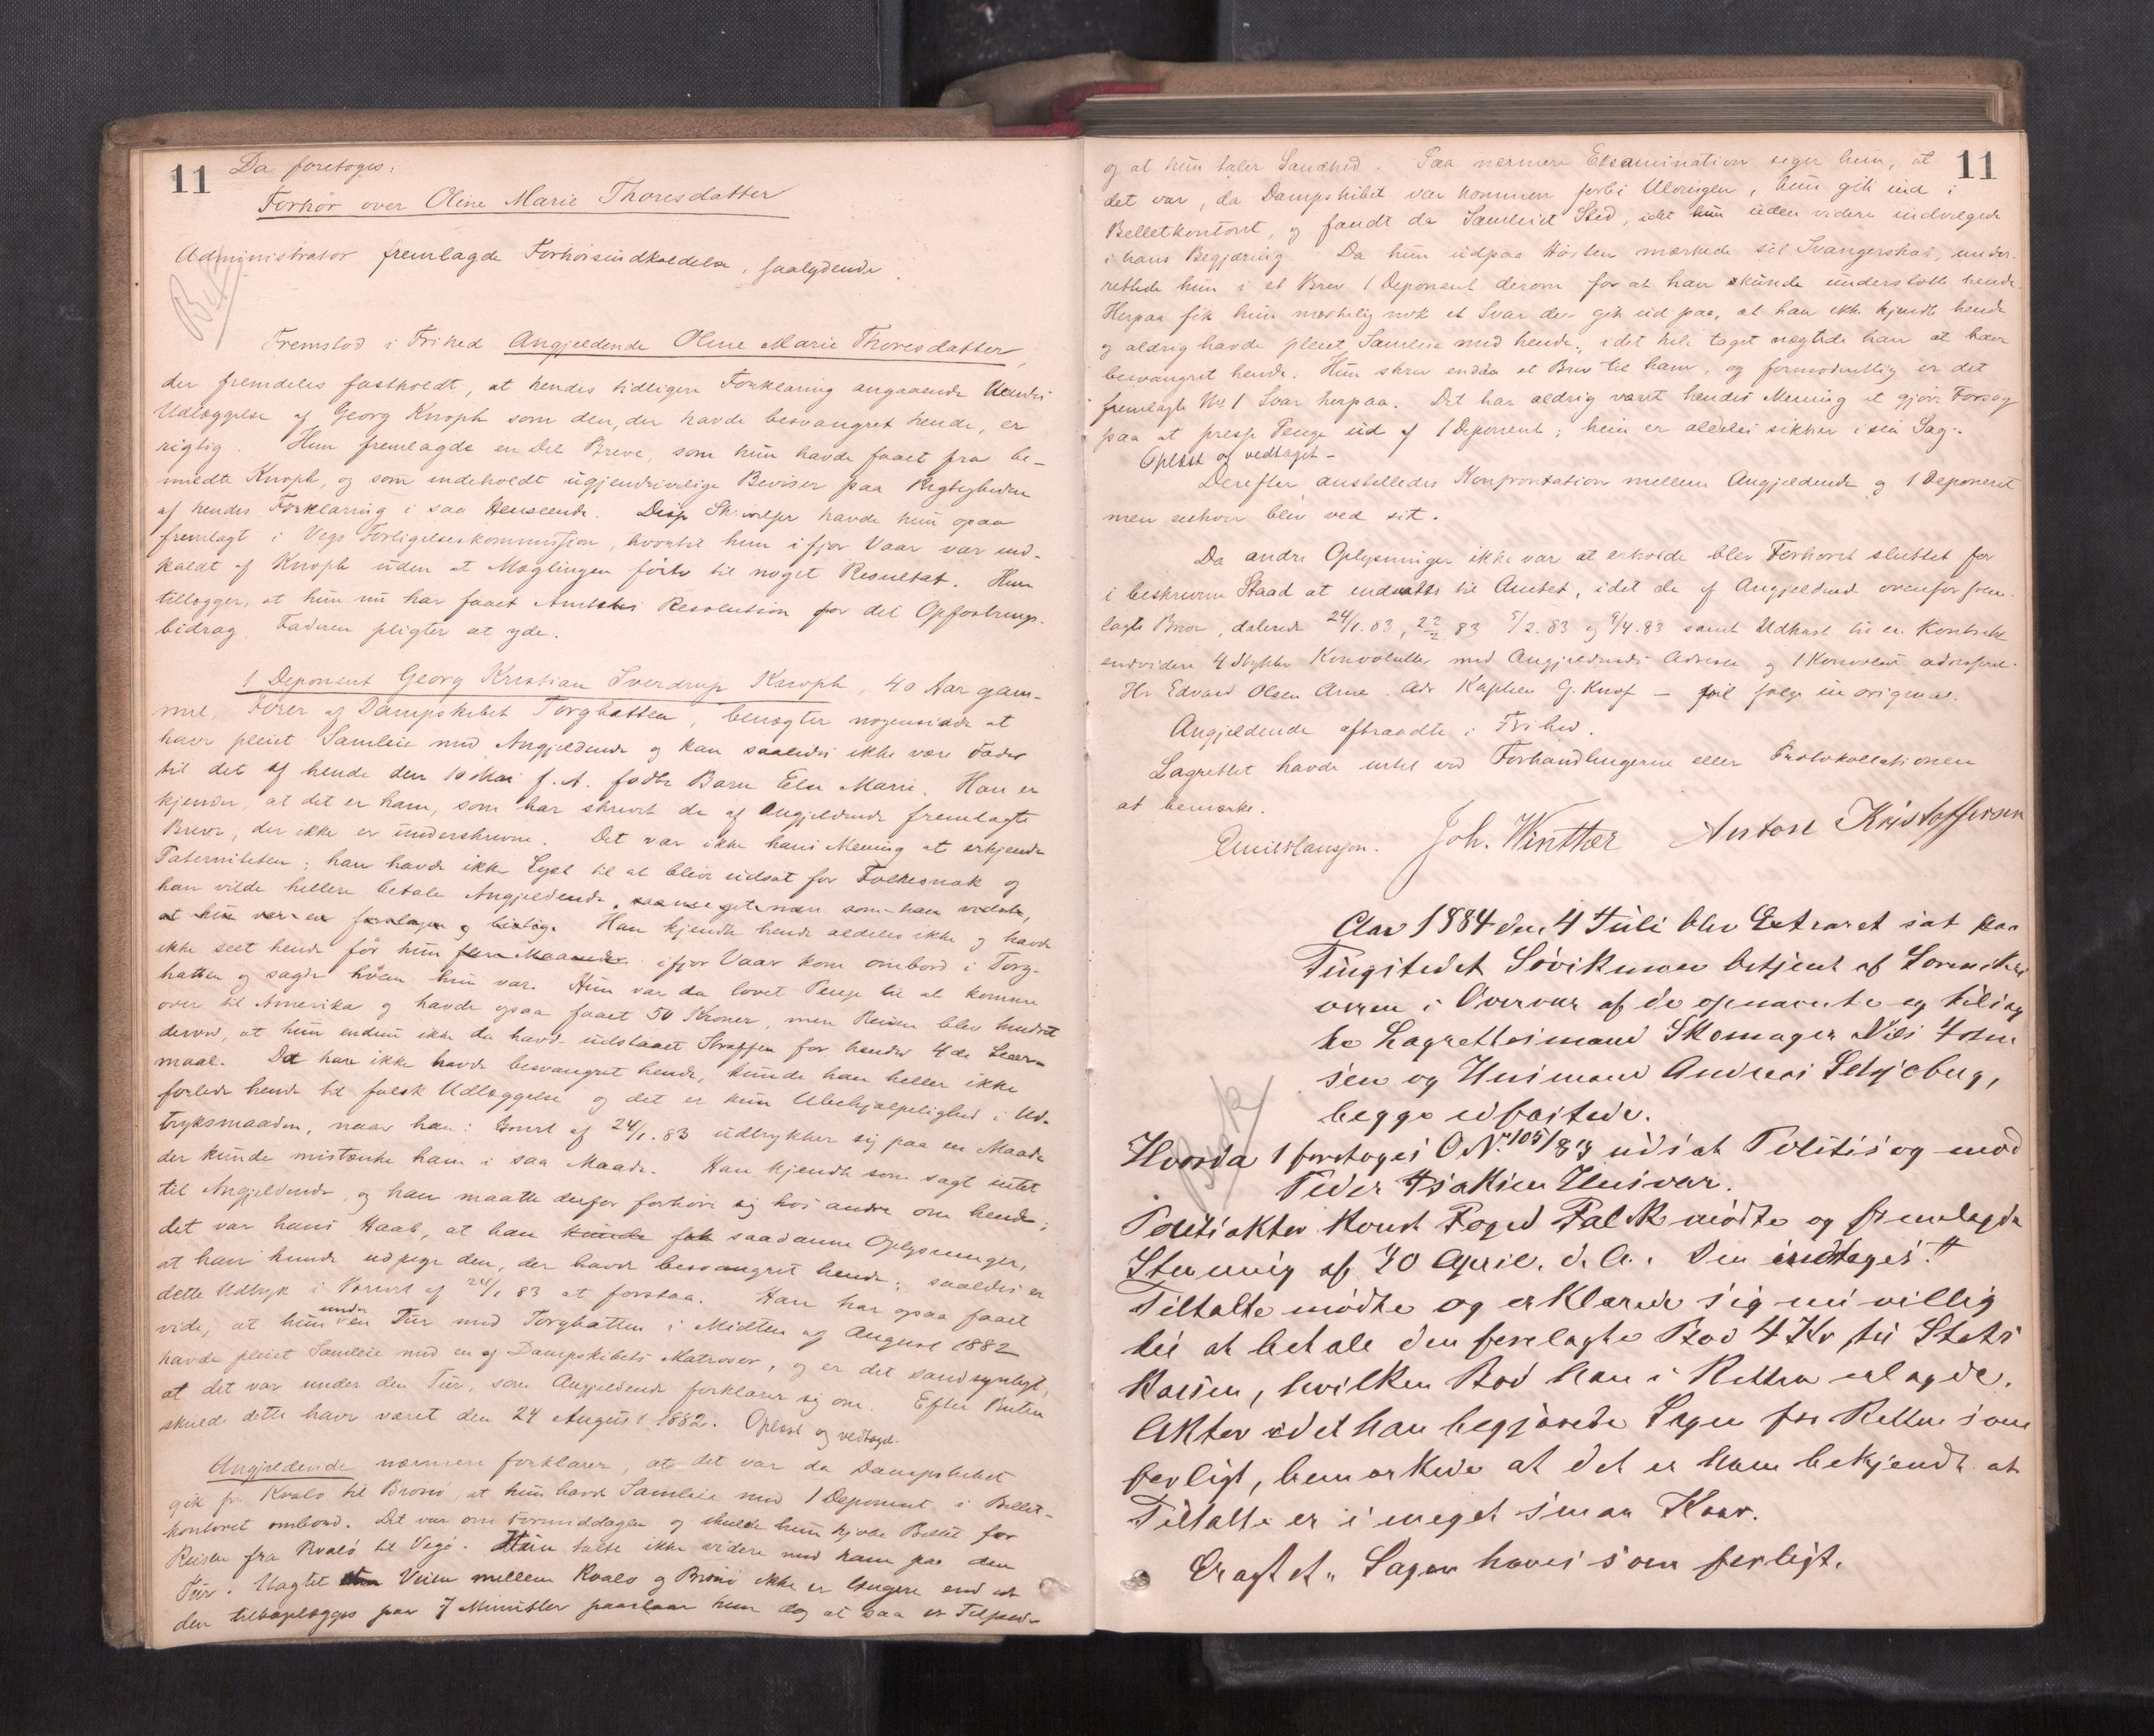 11 Da foretoges:
Forhør over Oline Marie Thoresdatter
Administrator fremlagde Forhørsindkaldelse, saalydende.
Fremstod i Frihed Angjeldende Oline Marie Thoresdatter,
der fremdeles fastholdt, at hendes tidligere Forklaring angaaende hendes
Udlæggelse af Georg Knoph som den, der havde besvangret hende, er
rigtig. Hun fremlagde en Del Breve, som hun havde faaet fra be-
meldte Knoph, og som indeholdt ugjendrivelige Beviser paa Rigtigheden
af hendes Forklaring i saa Henseende. Disse havde hun ogsaa
fremlagt i Vegø Forligelseskommission, hvortil hun ifjor Vaar var ind-
kaldt af Knoph uden at Mæglingen førte til noget Resultat. Hun
tillægger, at hun nu har faaet Amtets Resolution for det Opfostrings-
bidrag, Faderen pligter at yde.
1 Deponent Georg Kristian Sverdrup Knoph, 40 Aar gam-
mel, Fører af Dampskibet Torghatten, benægter nogensinde at
have pleiet Samleie med Angjeldende og kan saaledes ikke være Fader
til det af hende den 10 Mai f. A. fødte Barn Else Marie. Han er-
kjender, at det er ham, som har skrevet de af Angjeldende fremlagte
Breve, der ikke er underskrevne. Det var ikke hans Mening at erkjende
Paterniteten; han havde ikke Lyst til at blive udsat for Folkesnak og
han vilde hellere betale Angjeldende, som han vidste,
at hun var en og Han kjendte hende aldeles ikke og havde
ikke seet hende før hun flere Maaneder ifjor Vaar kom ombord i Torg-
hatten og sagde hvem hun var. Hun var da lovet Penge til at komme
over til Amerika og havde ogsaa faaet 50 Kroner, men Reisen blev hindret
derved, at hun endnu ikke da havde udstaaet Straffen for hendes 4de Leier-
maal. Da han ikke havde besvangret hende, kunde han heller ikke
forlede hende til falsk Udlæggelse og det er kun Ubehjælpelighed i Ud-
tryksmaaden, naar han i Brevet af 24/1. 83 udtrykker sig paa en Maade
der kunde mistænke ham i saa Maade. Han kjendte som sagt intet
til Angjeldende, og han maatte derfor forhøre sig hos andre om hende;
det var hans Haab, at han kunde fik saadanne Oplysninger,
at han kunde udpege den, der havde besvangret hende; saaledes er
dette Udtryk i Brevet af 24/1 83 at forstaa. Han har ogsaa faaet
vide, at hun under en Tur med Torghatten i Midten af August 1882
havde pleiet Samleie med en af Dampskibets Matroser, og er det sandsynligt,
at det var under den Tur, som Angjeldende forklarer sig om. Efter Ruten
skulde dette have været den 24 August 1882. Oplæst og vedtaget.
Angjeldende nærmere forklarer, at det var da Dampskibet
gik fra Kvalø til Brønø, at hun havde Samleie med 1 Deponent i Billet-
kontoret ombord. Det var om Formiddagen og skulde hun kjøbe Billet for
Reisen fra Kvalø til Vegø. Hun talte ikke videre med ham paa den
Tur. Uagtet Veien mellem Kvalø og Brønø ikke er længere end at
den tilbagelægges paa 7 Minutter paastaar hun dog at saa er Tilfælde
11
og at hun taler Sandhed. Paa nærmere Examination siger hun, at
det var, da Dampskibet var kommen forbi Ulvingen, hun gik ind i
Billetkontoret, og fandt da Samleiet Sted, idet hun uden videre indvilgede
i hans Begjæring. Da hun udpaa Høsten mærkede sit Svangerskab, under-
rettede hun i et Brev 1 Deponent derom for at han skunde understøtte hende.
Herpaa fik hun mærkelig nok et Svar der gik ud paa, at han ikke kjendte hende
og aldrig havde pleiet Samleie med hende, i det hele taget nægtede han at have
besvangret hende. Hun skrev endda et Brev til ham, og formodentlig er det
fremlagte No 1 Svar herpaa. Det har aldrig været hendes Mening at gjøre Forsøg
paa at presse Penge ud af 1 Deponent; hun er aldeles sikker i sin Sag.
Oplæst og vedtaget -
Derefter anstilledes Konfrontation mellem Angjeldende og 1 Deponent
men enhver blev ved sit.
Da andre Oplysninger ikke var at erholde blev Forhøret sluttet for
i beskreven Stand at indsættes til Amtet, idet de af Angjeldende ovenfor frem-
lagte Breve, daterede 24/1. 83, 22/2 83 5/2. 83 og 9/4. 83 samt Udkast til en Kontrakt
endvidere 4 Stykker Konvolutter med Angjeldendes Adresse og 1 Konvolut adresseret
Hr Edvard Olsen Arne. Adr Kaptein G. Knof - vil følge in original.
Angjeldende aftraadte i Frihed.
Lagrettet havde intet ved Forhandlingerne eller Protokollationen
at bemærke.
Emil Hanssen. Joh. Winther Anton Kristoffersen
Aar 1884 den 4 Juli blev Extraret sat paa
Tingstedet Søviknæs betjent af Sorenskri
veren i Overvær af de opnævnte og tilsag
te Lagrettesmænd Skomager Nils John
sen og Husmand Andreas Selsjeberg,
begge edfæstede.
Hvorda 1 foretoges O. No 105/83 udsat Politisag mod
Peder Isaksen Husvær.
Politiaktor Konst Foged Falck mødte og fremlagde
Stævning af 30 April. d. A. Den indtages:
Tiltalte mødte og erklærede sig nu villig
til at betale den forelagte Bod 4 Kr til Stats
kassen, hvilken Bod han i Retten erlagde.
Aktor idet han begjærede Sagen for Retten som
ferligt, bemærkede at det er ham bekjendt at
Tiltalte er i meget smaa Kaar.
Eragtet. Sagen haves som ferligt.